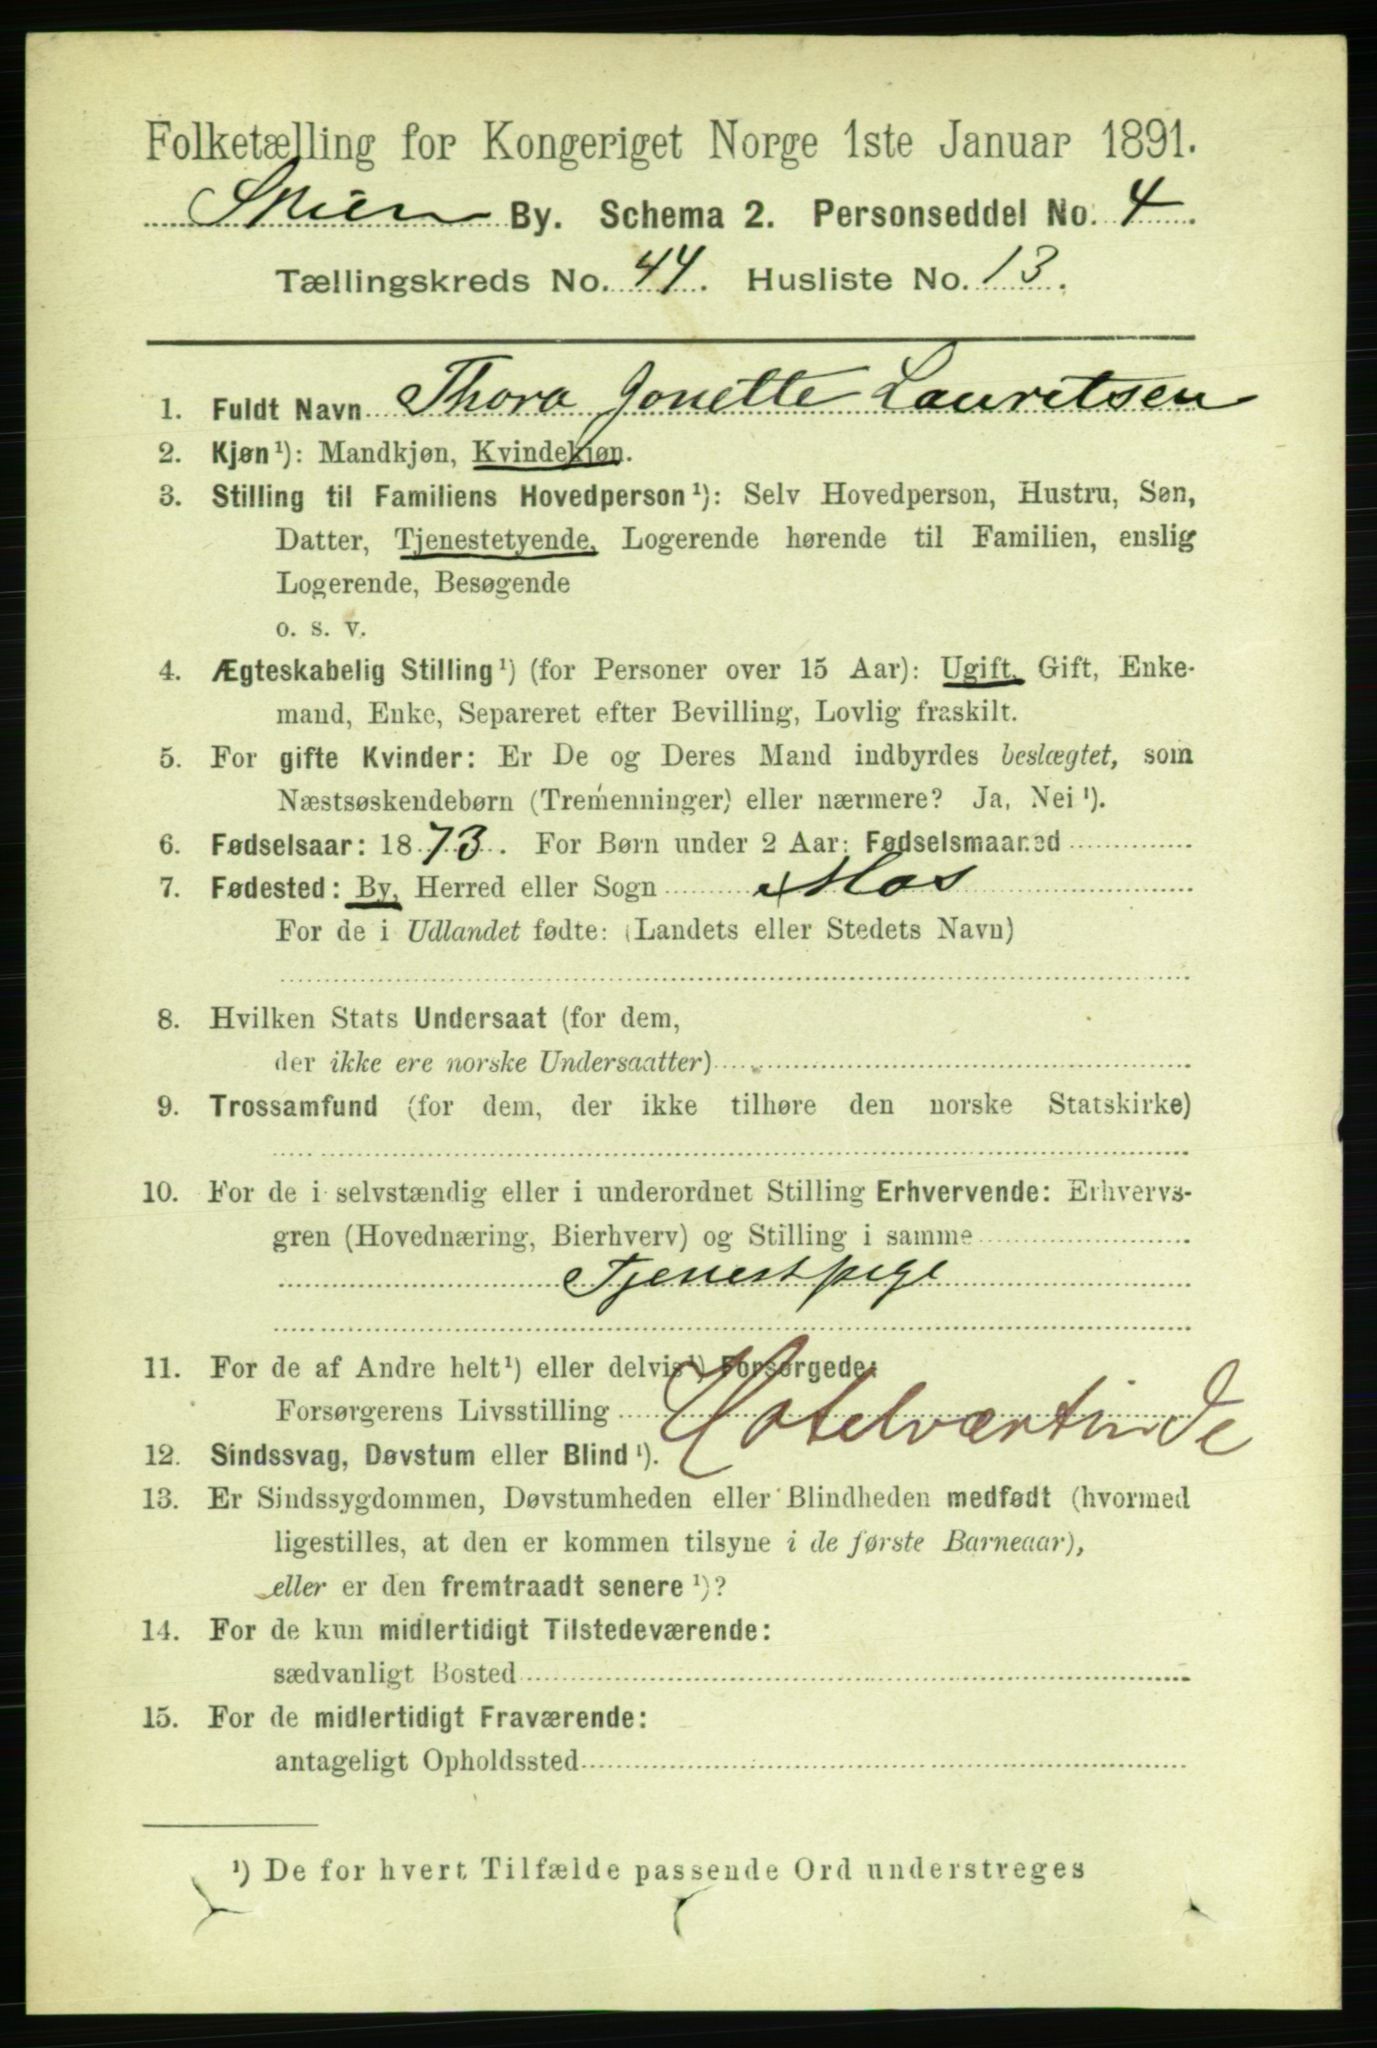 Folketælling for Kongeriget Norge 1ste Januar 1891.
Skien By. Schema 2. Personseddel No. 4.
Tællingskreds No. 44. Husliste No. 13.
1. Fuldt Navn Thora Jonette Lauritsen
2. Kjøn¹): Mandkjøn, Kvindekjøn.
3. Stilling til Familiens Hovedperson¹): Selv Hovedperson, Hustru, Søn,
Datter, Tjenestetyende, Logerende hørende til Familien, enslig
Logerende, Besøgende
o. s. v.
4. Ægteskabelig Stilling¹) (for Personer over 15 Aar): Ugift, Gift, Enke-
mand, Enke, Separeret efter Bevilling, Lovlig fraskilt.
5. For gifte Kvinder: Er De og Deres Mand indbyrdes beslægtet, som
Næstsøskendebørn (Tremenninger) eller nærmere? Ja, Nei¹).
6. Fødselsaar: 1873. For Børn under 2 Aar: Fødselsmaaned
7. Fødested: By, Herred eller Sogn Mos
For de i Udlandet fødte: (Landets eller Stedets Navn)
8. Hvilken Stats Undersaat (for dem,
der ikke ere norske Undersaatter)
9. Trossamfund (for dem, der ikke tilhøre den norske Statskirke)
10. For de i selvstændig eller i underordnet Stilling Erhvervende: Erhvervs-
gren (Hovednæring, Bierhverv) og Stilling i samme
Tjenestpige
11. For de af Andre helt¹) eller delvis¹) Forsørgede:
Forsørgerens Livsstilling Hotelværtinde
12. Sindssvag, Døvstum eller Blind¹).
13. Er Sindssygdommen, Døvstumheden eller Blindheden medfødt (hvormed
ligestilles, at den er kommen tilsyne i de første Barneaar),
eller er den fremtraadt senere¹)?
14. For de kun midlertidigt Tilstedeværende:
sædvanligt Bosted
15. For de midlertidigt Fraværende:
antageligt Opholdssted
¹) De for hvert Tilfælde passende Ord understreges